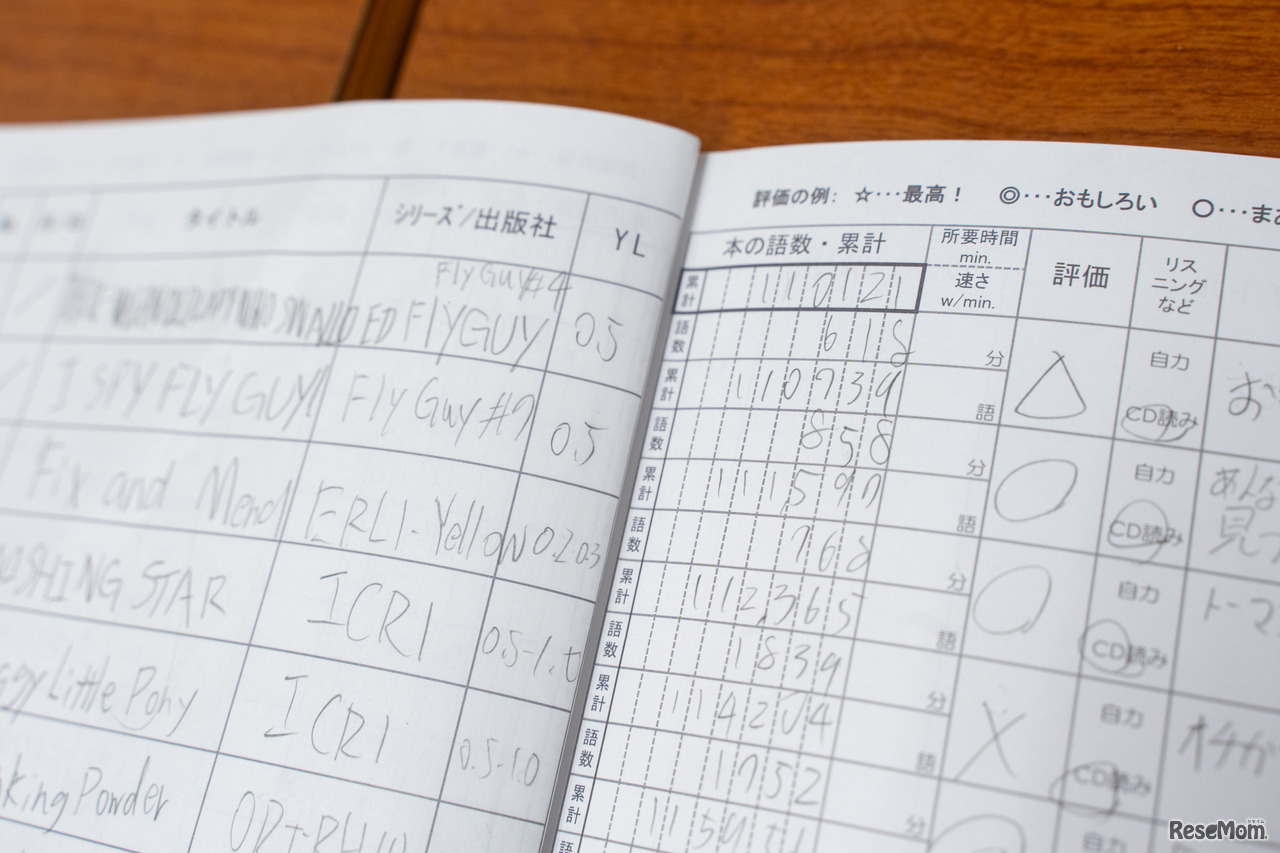 タイトル
シリーズ/出版社
YL
Fly Guy #4
SWALLOWED FLY GUY
0.5
I SPY FLY GUY!
Fly Guy #7
0.5
Fix and Mend
ERL1-Yellow
0.2 0.3
SHING STAR
ICR1
0.5-1.0
Little Pony
ICR1
0.5-1.0
king Powder
評価の例: ☆…最高! ◎…おもしろい 〇…まあ
本の語数・累計
所要時間
min.
速さ
w/min.
評価
リス
ニング
など
累計
110121
語数
618
分
△
自力
CD読み
累計
110739
語
語数
858
分
〇
自力
CD読み
あんな
見
累計
111,597
語
語数
768
分
〇
自力
CD読み
トーマ
累計
112,365
語
語数
1839
分
×
自力
CD読み
オチが
累計
114204
語
語数
1752
分
自力
累計
語
ReseMom
リセマム